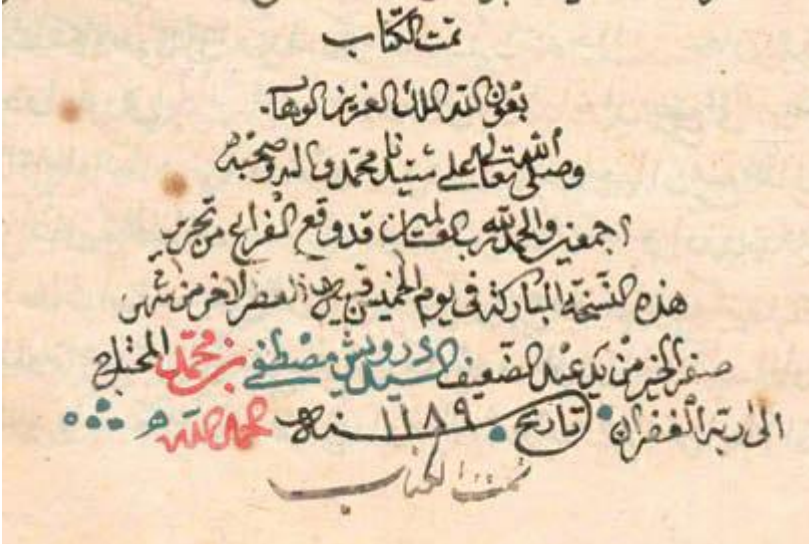 تمت الكتاب
بعون الله الملك العزيز الوهاب
وصلى الله تعالى على سيدنا محمد واله وصحبه
اجمعين والحمد لله رب العالمين قد وقع الفراغ من تحرير
هذه النسخة المباركة في يوم الخميس العصر الاخر من شهر
صفر الخير من يد عبد الضعيف السيد درويش مصطفى بن محمد المحتاج
الى ربه الغفران تاريخ سنه ١١٨٩
تمت الكتاب